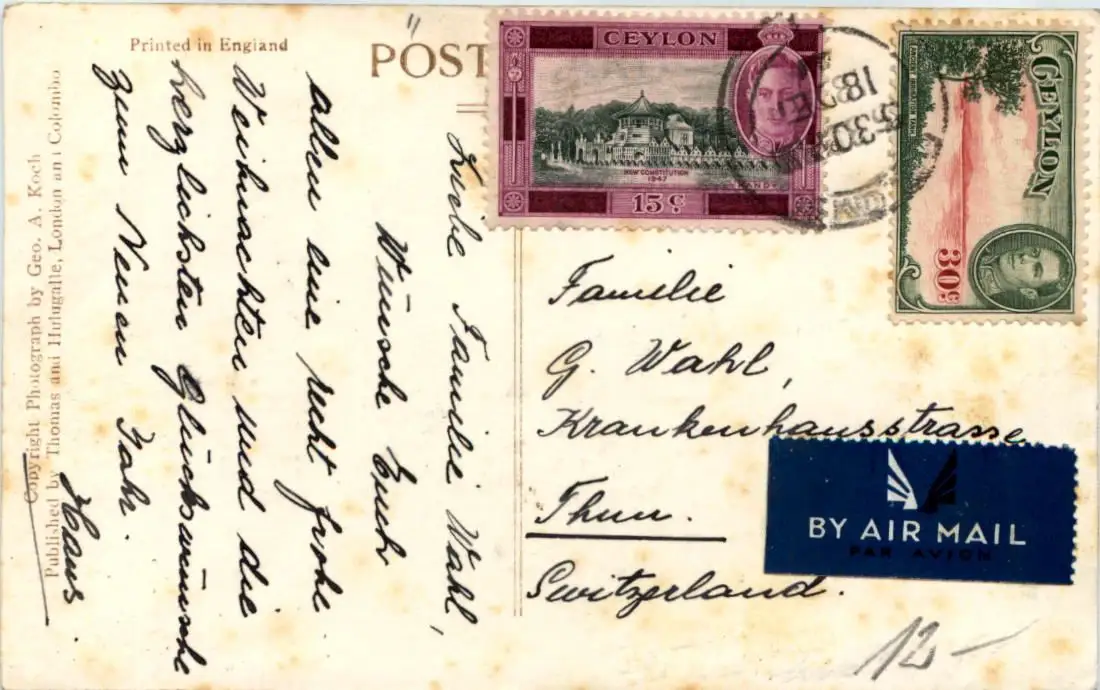 Printed in England
POST
Copyright Photograph by Geo. A. Koch
Published by Thomas and Hulugalle, London and Colombo
Liebe Familie Wahl,
Wünsche Euch
allen eine recht frohe
Weihnachten und die
herzlichsten Glückwünsche
zum Neuen Jahr
Hans
CEYLON
NEW CONSTITUTION
1947
KANDY
15 c
CEYLON
ANCIENT IRRIGATION TANK
30c
Familie
G. Wahl,
Krankenhausstrasse
Thun.
Switzerland.
BY AIR MAIL
PAR AVION
12-